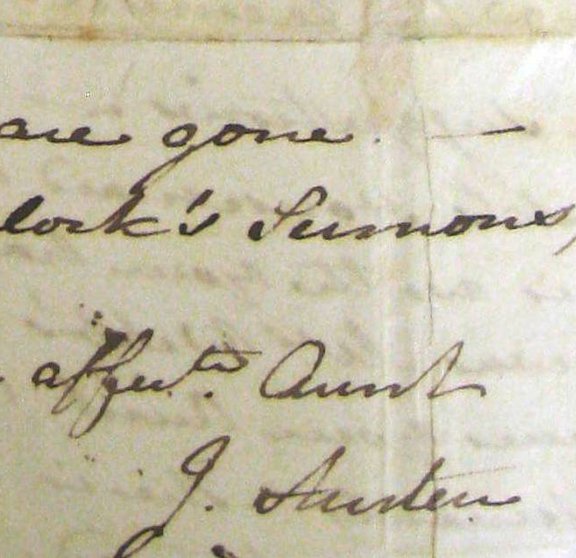 are gone. —
lock's Sermons,
affecte. Aunt
J. Austen